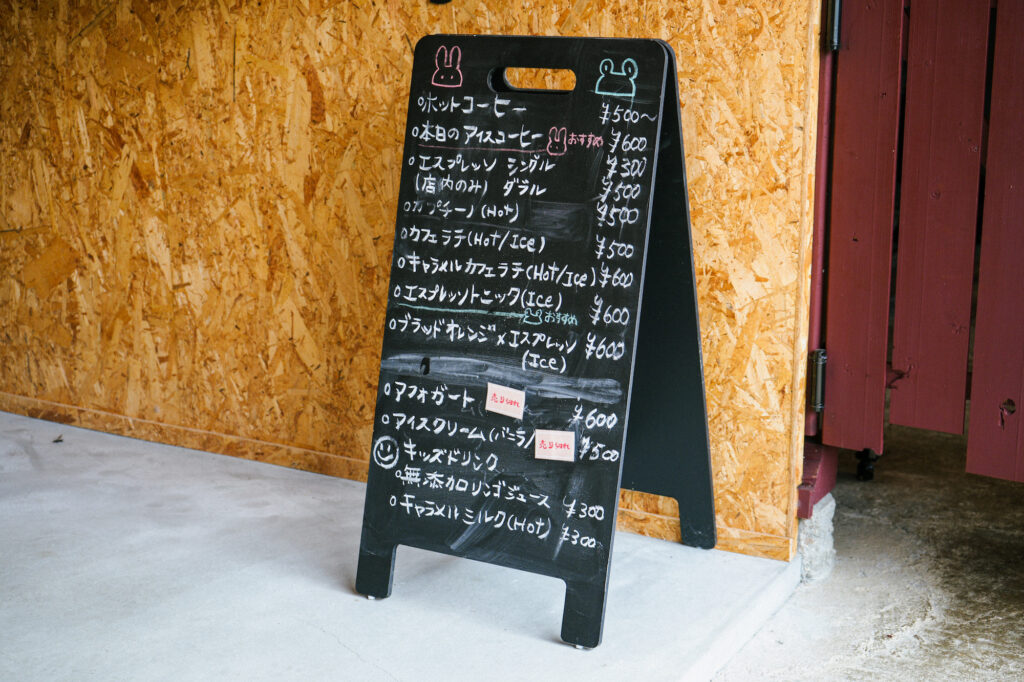 ホットコーヒー ¥500〜
本日のアイスコーヒー おすすめ ¥600
エスプレッソ シングル ¥300
(店内のみ) ダブル ¥500
カプチーノ(Hot) ¥500
カフェラテ(Hot/Ice) ¥500
キャラメルカフェラテ(Hot/Ice) ¥600
エスプレッソトニック(Ice) ¥600
おすすめ
ブラッドオレンジ×エスプレッソ ¥600
(Ice)
アフォガート 売り切れ ¥600
アイスクリーム(バニラ) 売り切れ ¥500
キッズドリンク
無添加リンゴジュース ¥300
キャラメルミルク(Hot) ¥300